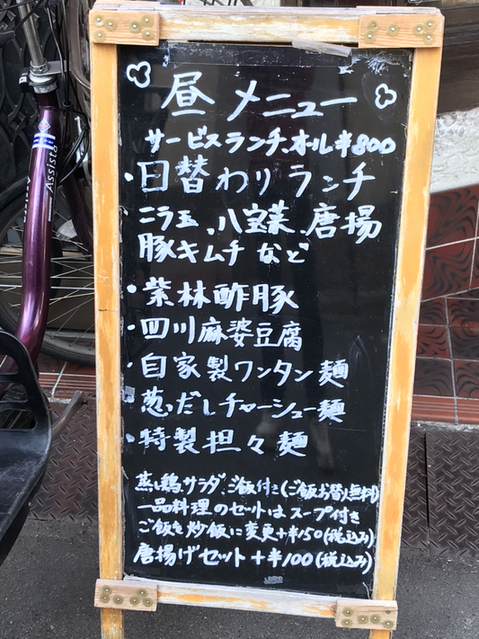 昼メニュー
サービスランチ、オール¥800
・日替わりランチ
ニラ玉、八宝菜、唐揚
豚キムチ など
・紫林酢豚
・四川麻婆豆腐
・自家製ワンタン麺
・葱だしチャーシュー麺
・特製担々麺
蒸し鶏、サラダ、ご飯付(ご飯お替り無料)
一品料理のセットはスープ付き
ご飯を炒飯に変更+¥150(税込み)
唐揚げセット+¥100(税込み)
Assista